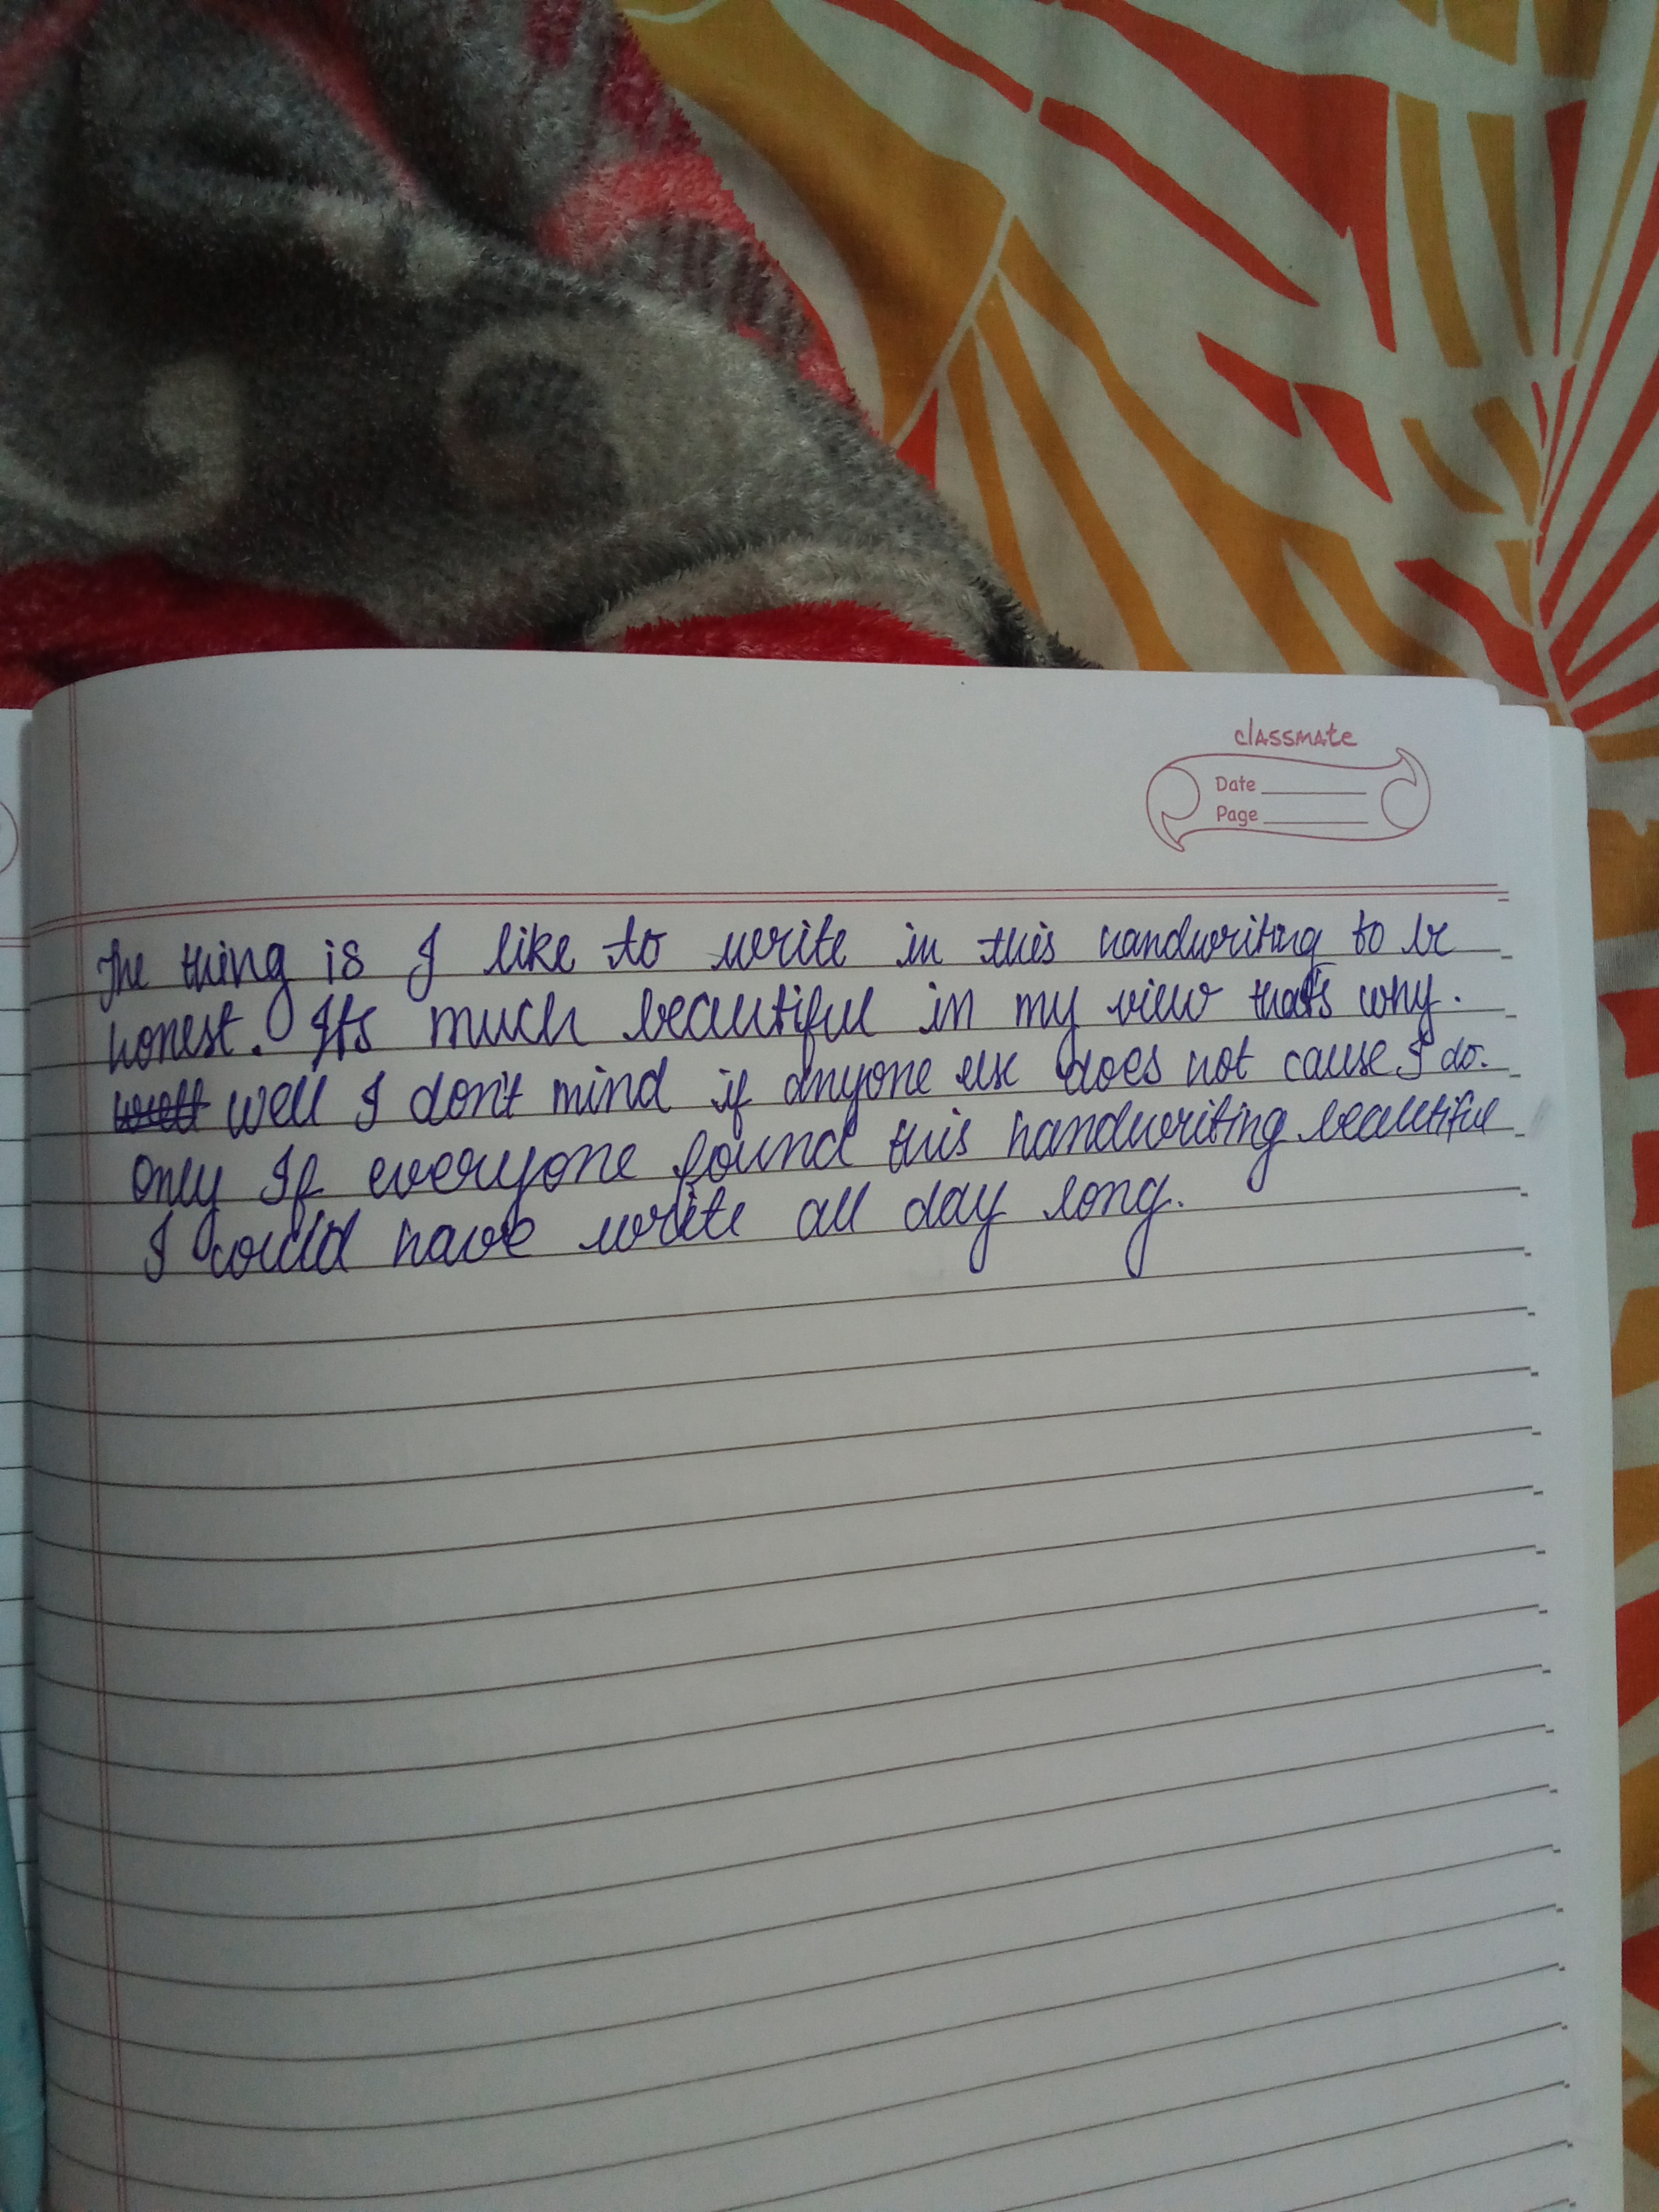 classmate
Date
Page
The thing is I like to write in this handwriting to be
honest. It's much beautiful in my view that's why.
well I don't mind if anyone else does not cause I do.
Only If everyone found this handwriting beautiful
I could have write all day long.